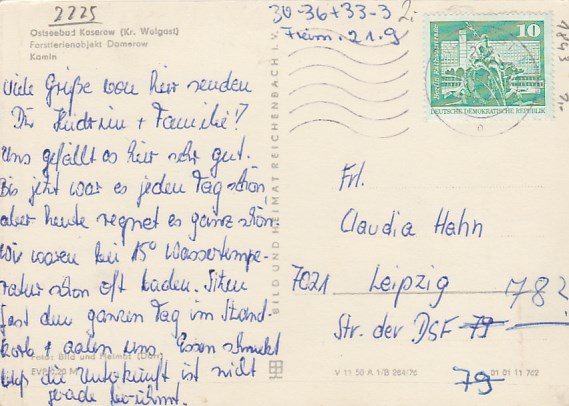 2225
30-36+33-3
21.9
1843
Ostseebad Koserow (Kr. Wolgast)
Forstferienobjekt Damerow
Kamin
10
DEUTSCHE DEMOKRATISCHE REPUBLIK
viele Grüße von hier senden
Dir + Familie!
Uns gefällt es hier sehr gut.
Bis jetzt war es jeden Tag schön
aber heute regnet es ganz schön
Wir waren bei 15° Wassertempe-
ratur schon oft baden. Sitzen
fast den ganzen Tag im Strand-
korb + aalen uns. Essen schmeckt
die Unterkunft ist nicht
gerade berühmt.
Foto: Bild und Heimat (Darr)
EVP 0,20 M
BILD UND HEIMAT REICHENBACH I. V.
Frl.
Claudia Hahn
7021 Leipzig 782
Str. der DSF 79
79
V 11 50 A 1/B 264/76
01 01 11 702